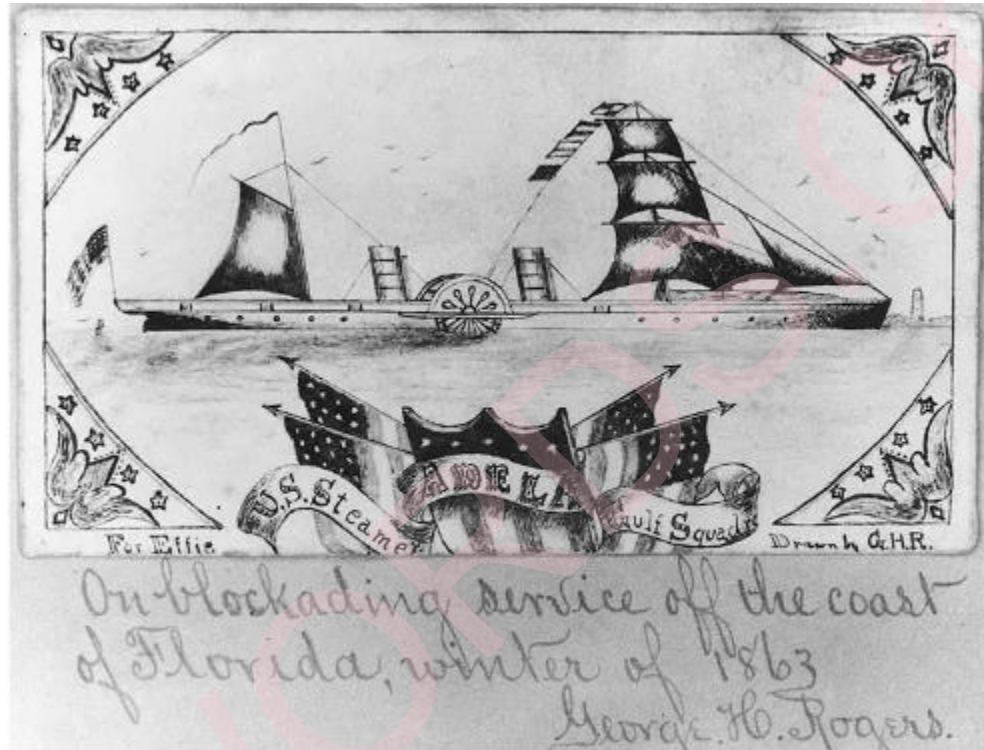 U.S. Steamer
ADELA
Gulf Squadron
For Effie
Drawn by G.H.R.
On blockading service off the coast
of Florida, winter of 1863
George. H. Rogers.